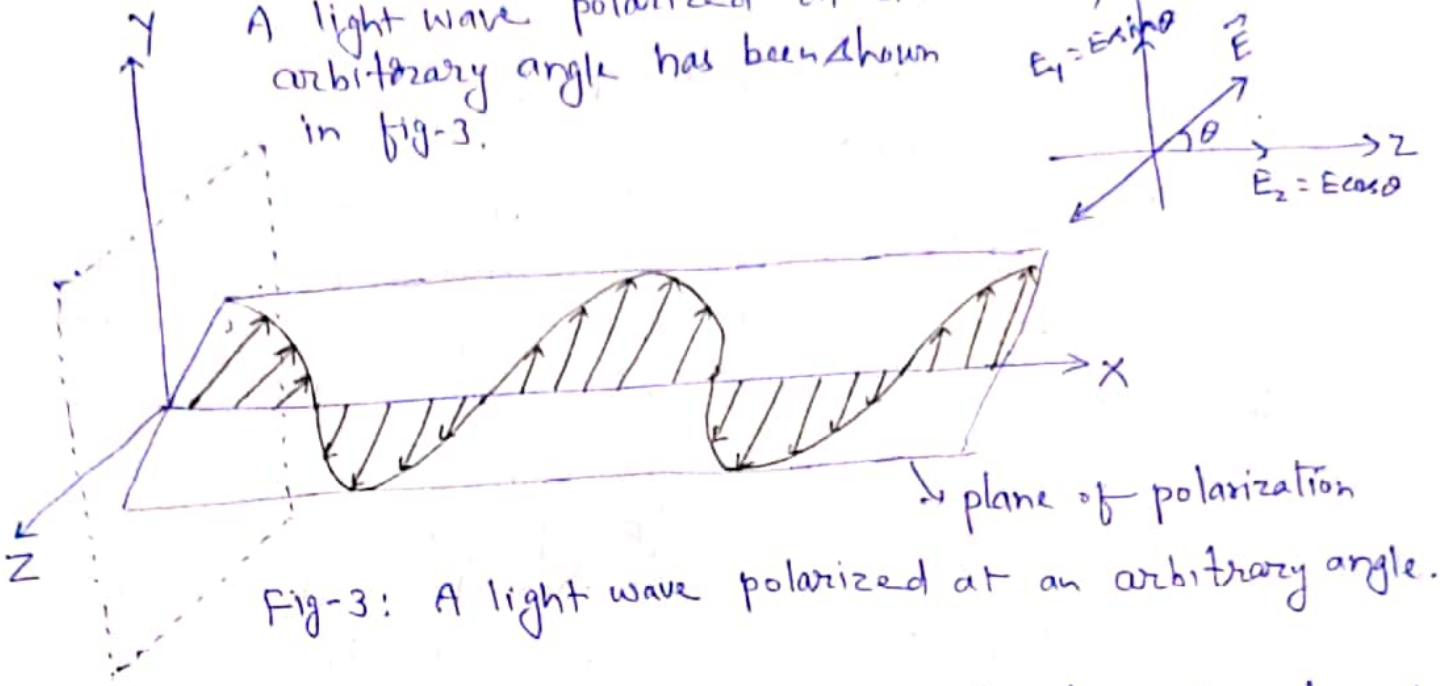 Y
A light wave polarized
arbitrary angle has been shown
in fig-3.
E₁ = E sinθ
Ê
θ
Z
E₂ = E cosθ
X
Z
plane of polarization
Fig-3: A light wave polarized at an arbitrary angle.